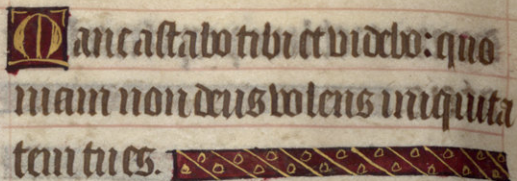 Mane astabo tibi et videbo: quo
niam non deus volens iniquita
tem tu es.